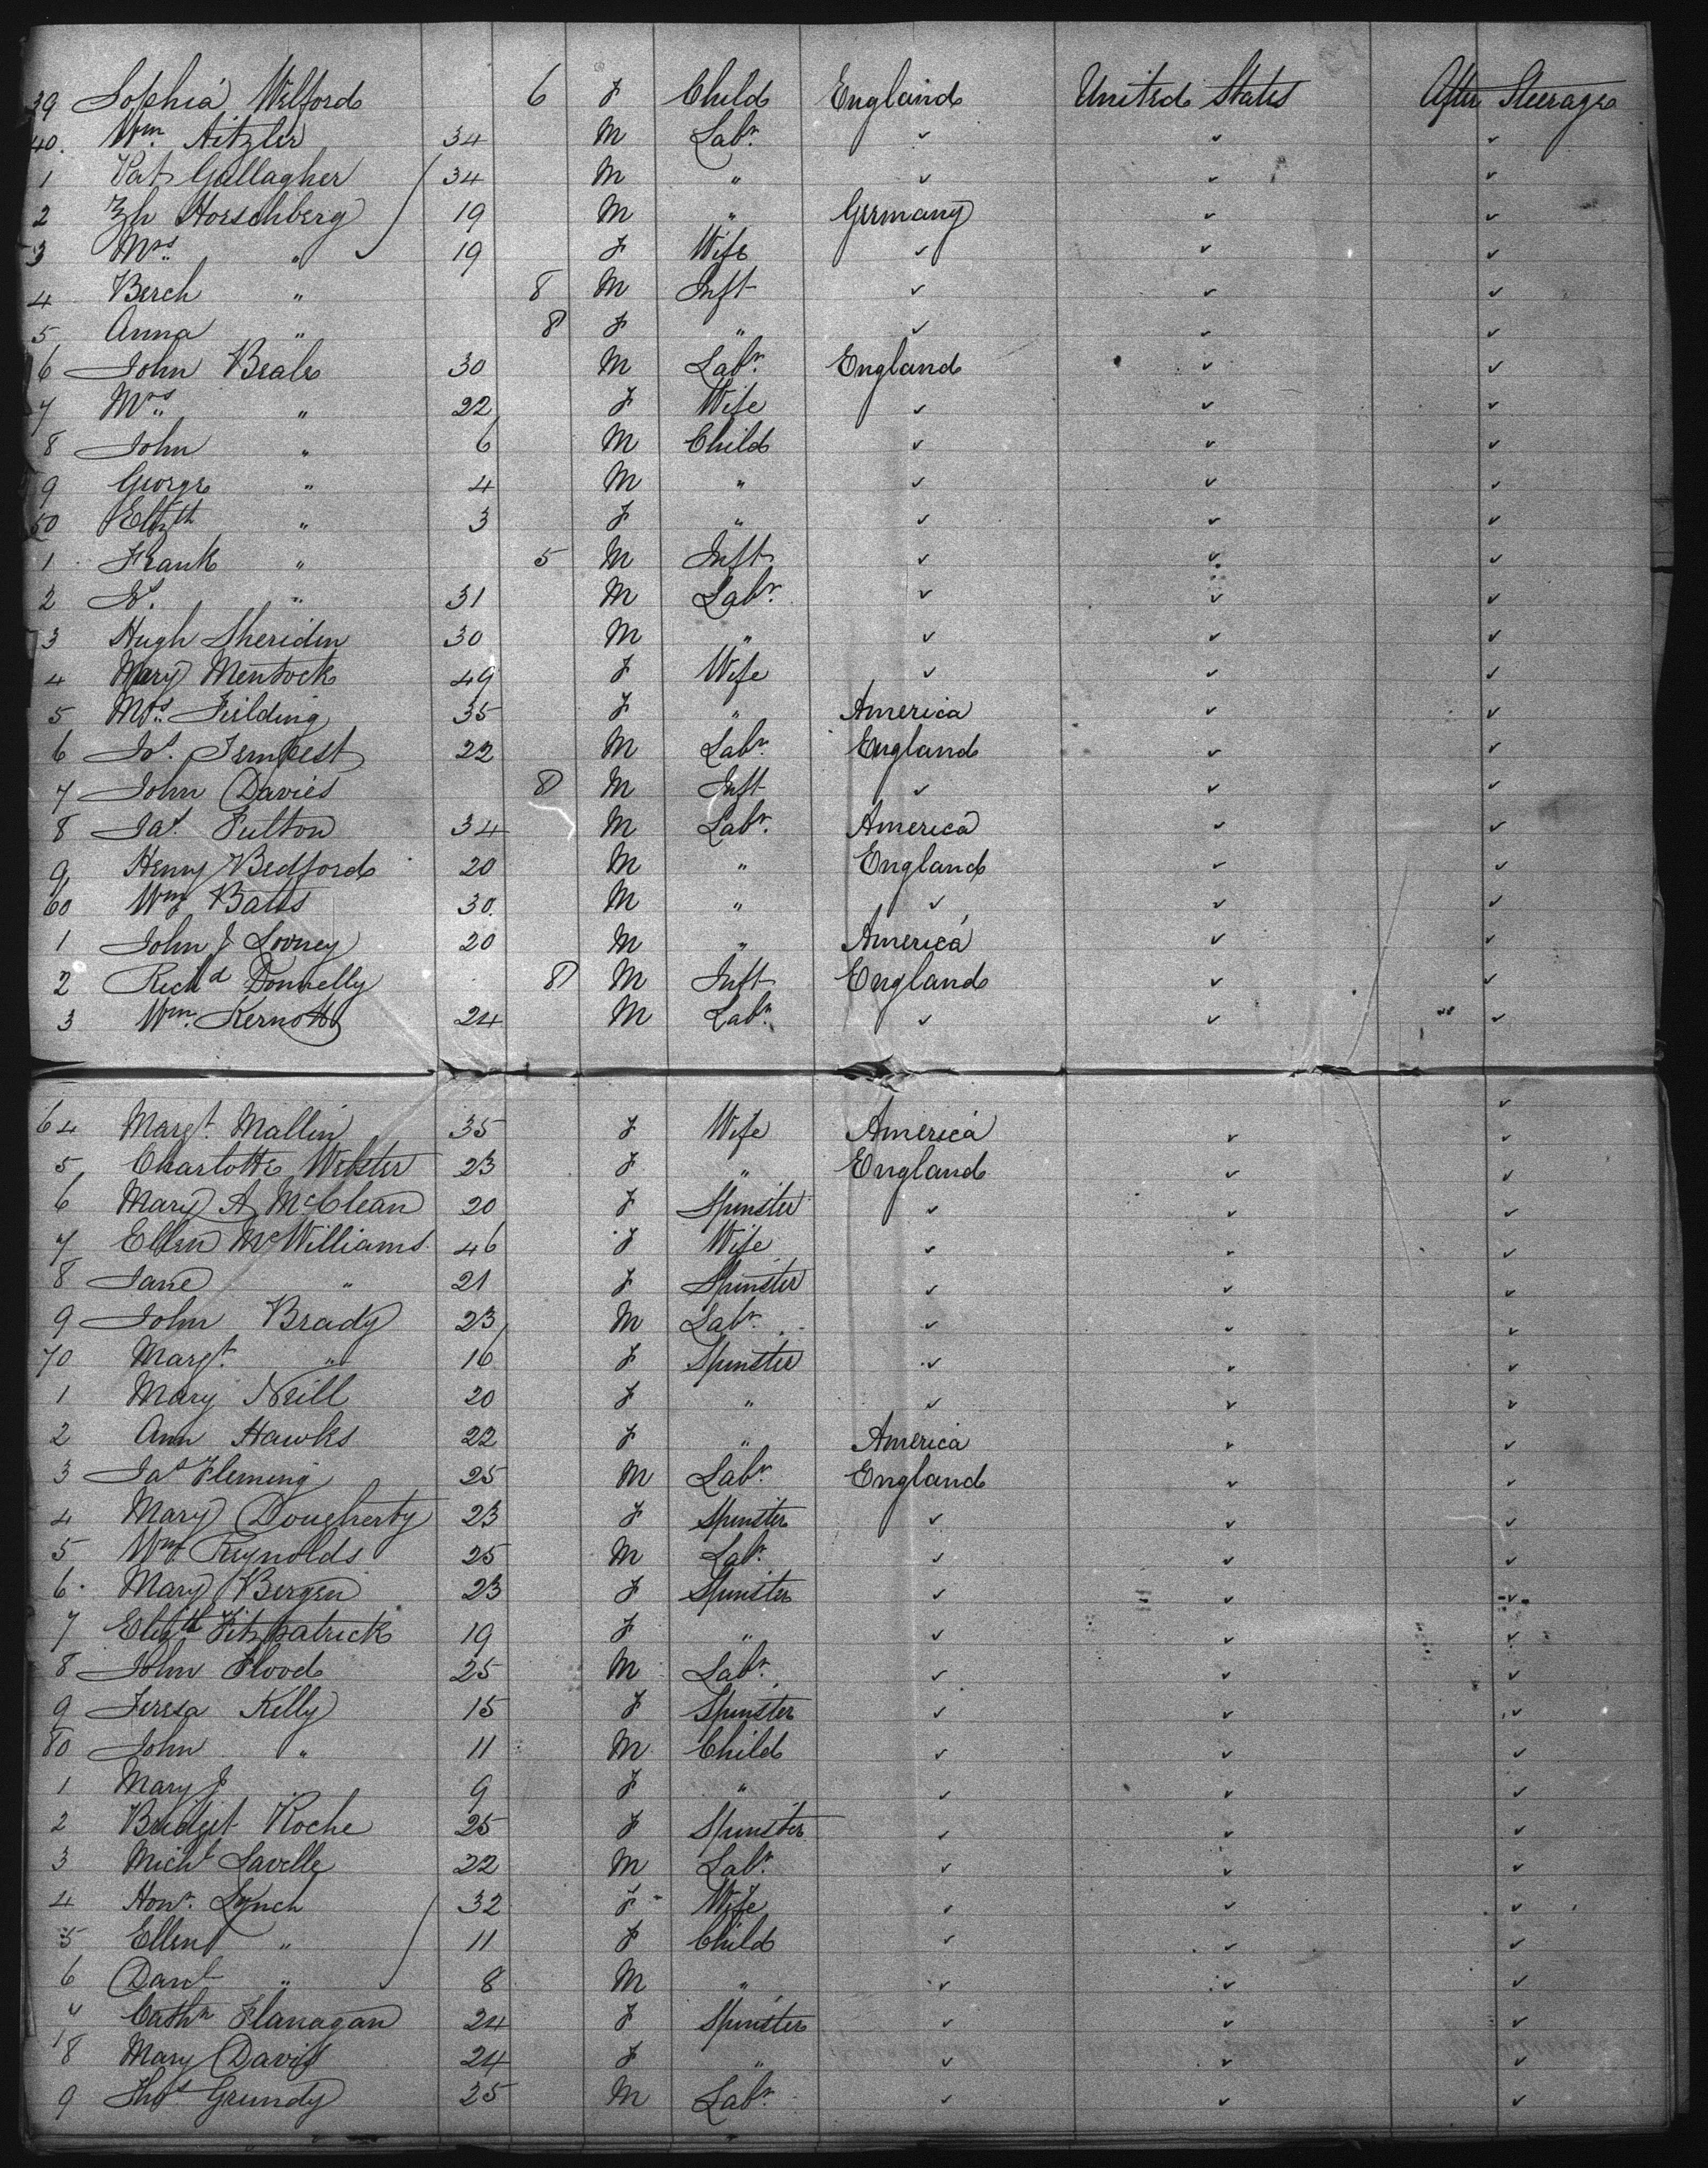 39 Sophia Welford 6 F Child England United States After Steerage
40. Wm. Aitzler 34 M Labr. ✓ ✓ ✓
1 Pat Gallagher 34 M " ✓ ✓ ✓
2 Horschberg 19 M " Germany ✓ ✓
3 Mrs. " 19 F Wife ✓ ✓ ✓
4 Berch " 8 M Inft ✓ ✓ ✓
5 Anna " 8 F " ✓ ✓ ✓
6 John Beale 30 M Labr. England ✓ ✓
7 Mrs. " 22 F Wife ✓ ✓ ✓
8 John " 6 M Child ✓ ✓ ✓
9 George " 4 M " ✓ ✓ ✓
50 Elizth " 3 F " ✓ ✓ ✓
1 Frank " 5 M Inft ✓ ✓ ✓
2 " 31 M Labr. ✓ ✓ ✓
3 Hugh Sheridin 30 M " ✓ ✓ ✓
4 Mary Mentock 49 F Wife ✓ ✓ ✓
5 Mrs. Fielding 35 F " America ✓ ✓
6 Js. Tempest 22 M Labr. England ✓ ✓
7 John Davies 8 M Inft ✓ ✓ ✓
8 Jas. Fulton 34 M Labr. America ✓ ✓
9 Henry Bedford 20 M " England ✓ ✓
60 Wm Bates 30. M " ✓ ✓ ✓
1 John J Looney 20 M " America ✓ ✓
2 Richd Donnelly 8 M Inft England ✓ ✓
3 Wm. Kernott 24 M Labr. ✓ ✓ ✓
64 Margt. Mallin 35 F Wife America ✓ ✓
5 Charlotte Webster 23 F " England ✓ ✓
6 Mary A McClean 20 F Spinster ✓ ✓ ✓
7 Ellen McWilliams 46 F Wife ✓ ✓ ✓
8 Jane " 21 F Spinster ✓ ✓ ✓
9 John Brady 23 M Labr. ✓ ✓ ✓
70 Margt. " 16 F Spinster ✓ ✓ ✓
1 Mary Neill 20 F " ✓ ✓ ✓
2 Ann Hawks 22 F " America ✓ ✓
3 Jas Fleming 25 M Labr. England ✓ ✓
4 Mary Dougherty 23 F Spinster ✓ ✓ ✓
5 Wm Reynolds 25 M Labr. ✓ ✓ ✓
6 Mary Bergen 23 F Spinster ✓ ✓ ✓
7 Elizth Fitzpatrick 19 F " ✓ ✓ ✓
8 John Flood 25 M Labr. ✓ ✓ ✓
9 Teresa Kelly 15 F Spinster ✓ ✓ ✓
80 John " 11 M Child ✓ ✓ ✓
1 Mary J 9 F " ✓ ✓ ✓
2 Bridget Roche 25 F Spinster ✓ ✓ ✓
3 Michl Lavelle 22 M Labr. ✓ ✓ ✓
4 Honr. Lynch 32 F Wife ✓ ✓ ✓
5 Ellen " 11 F Child ✓ ✓ ✓
6 Danl " 8 M " ✓ ✓ ✓
7 Cathn Flanagan 24 F Spinster ✓ ✓ ✓
8 Mary Davis 24 F " ✓ ✓ ✓
9 Thos Grundy 25 M Labr. ✓ ✓ ✓